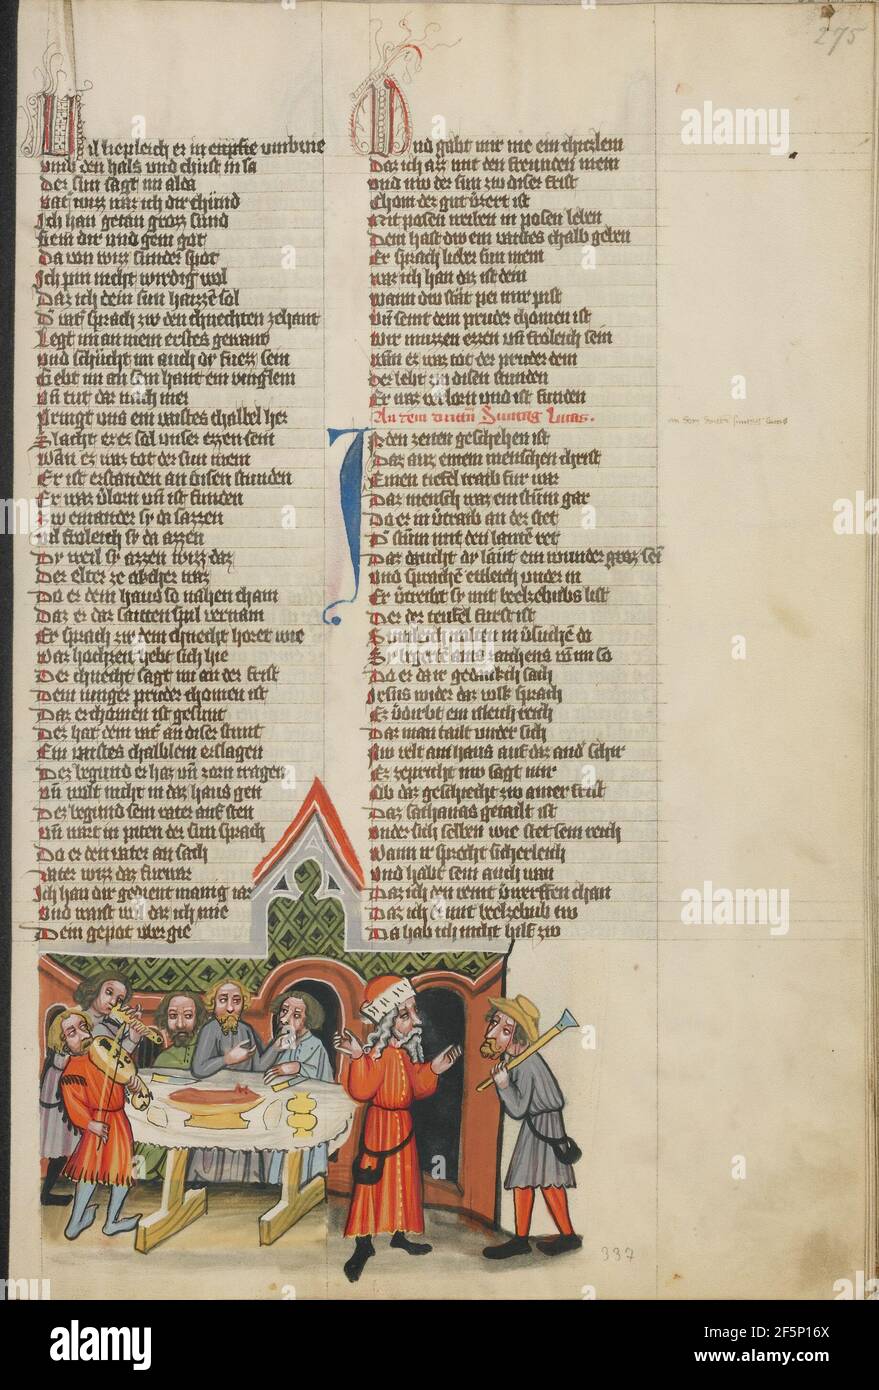 275
Vil liepleich er in enpfie umbvie
umb den hals und chust in sa
Der sun sagt im alda
vat' wizz nar ich dir chund
Ich han getan grozz sund
hem dir und gem got
Da von wizz sunder spot
Ich pin nicht wirdig wol
Daz ich dein sun haizze sol
D' vat' sprach zw den chnechten zehant
Legt im an mein erstes gewant
und schucht im auch dy fuezz sein
Gebt im an sein hant ein vingerlein
Vn tut dar nach mer
Pringt uns ein vaistes chalbel her
Slacht er ez sol unser ezzen sein
Wan ez waz tot der sun mein
Er ist erstanden an disen stunden
Er waz v'lorn vn ist funden
Zw einander sy da sazzen
vil froleich sy da azzen
Dy weil sy azzen wizz daz
Der elter ze akcher waz
Do er dem haus so nahen cham
Daz er daz saiten spil vernam
Er sprach zw dem chnecht horet wie
waz hochzeit hebt sich hie
Der chnecht sagt im an der frist
Dem iunger pruder chomen ist
Daz er chomen ist gesunt
Dez hat dein vat' an diser stunt
Ein vaistes chalblein erslagen
Dez begund er haz vn zorn tragen
vn wolt nicht in daz haus gen
Dez begund sein vater auf sten
vn wart in piten der sun sprach
Do er den vater an sach
vater wizz daz furwar
Ich han dir gedient manig iar
und waist wol daz ich nie
Dein gepot uber gie
Und gabt mir nie ein chiczlein
Daz ich azz mit den freunden mein
und nw der sun zw diser frist
Chom der gut v'zert ist
Mit posen weiben in posen leben
Dem hast dw ein vaistes chalb geben
Er sprach lieber sun mein
waz ich han daz ist dein
wann dw stat pei mir pist
Vn seint dein pruder chomen ist
Wir muzzen ezzen vn froleich sein
wan ez waz tot der pruder dein
Der lebt zu disen stunden
Er waz verlorn und ist funden
An dem dritten Suntag Lucas.
In den zeiten geschehen ist
Daz auz einem menschen christ
Einen tiefel traib fur war
Daz mensch waz ein stum gar
Do er in v'traib an der stet
D' stum mit den lauten ret
Daz daucht dy laut ein wunder groz sein
und sprachen etleich under in
Er v'treibt sy mit beelzebubs list
Der der teufel furst ist
Sumleich wolten in v'suchen do
Sy begerten ains zaichens von im so
Do er da ir gedankch sach
Jesus wider daz volk sprach
Ez v'dirbt ein isleich reich
Daz man tailt under sich
Nw velt ain haus auf daz and' schir
Ez zepricht nw sagt mir
Ob daz geschiecht zw ainer frist
Daz sathanas getailt ist
under sich selben wie stet sein reich
Wann ir sprecht sicherleich
und habt sein auch wan
Daz ich den veint v'werffen chan
Daz ich ez mit beelzebub tw
Da hab ich nicht hilf zw
337
alamy
Image ID: 2F5P16X
www.alamy.com